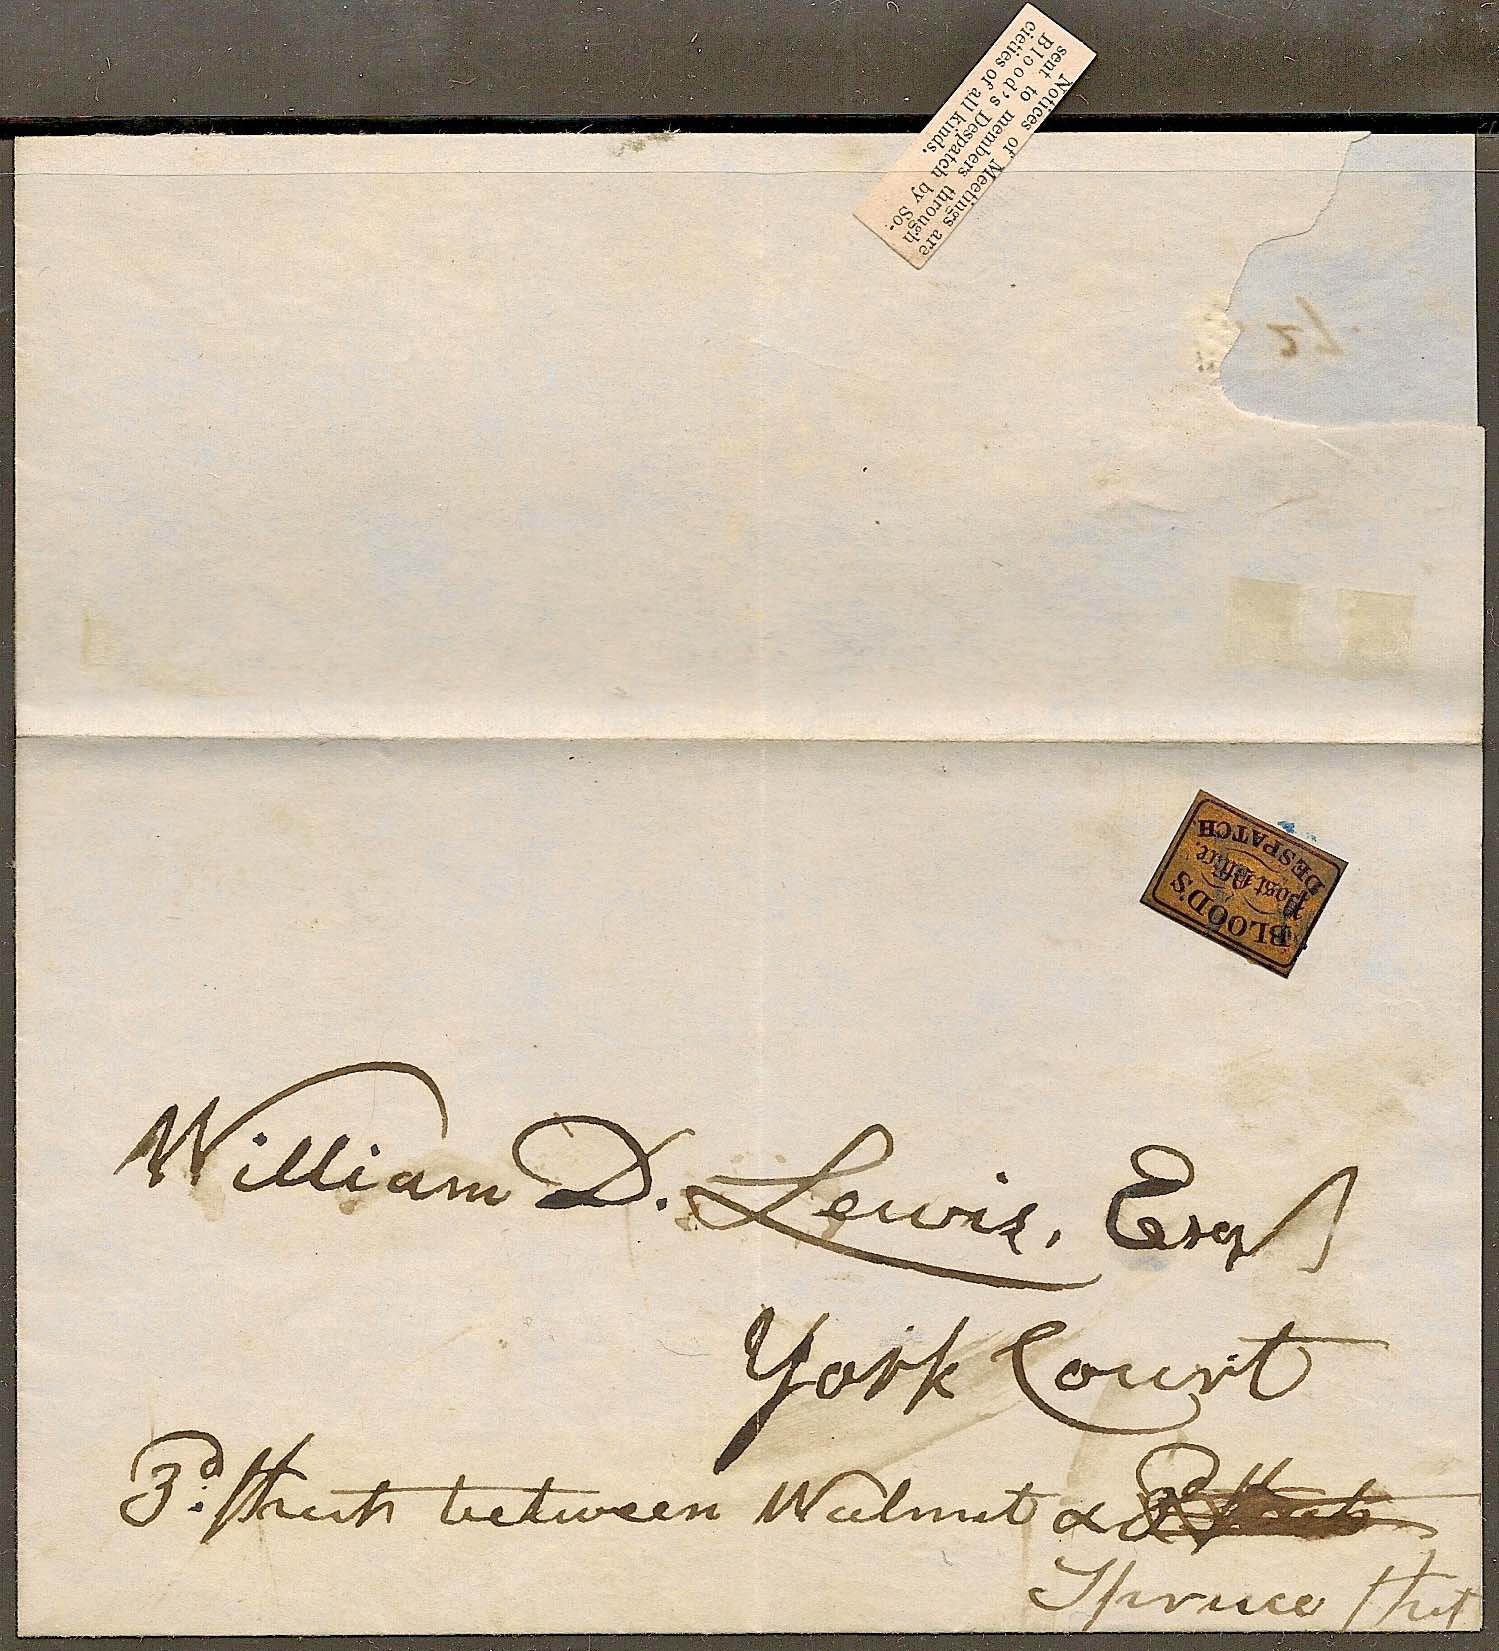 Notices of Meetings are
sent to members through
Blood's Despatch by So-
cieties of all kinds.
BLOOD'S
Post Office.
DESPATCH
William D. Lewis, Esq
York Court
3d. Street between Walnut &
Spruce Street